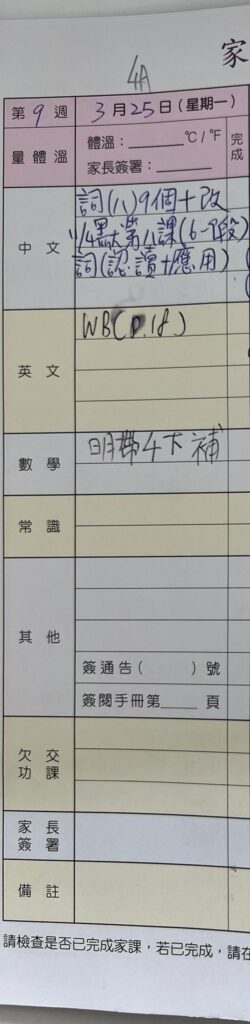 家
4A
第 9 週 3 月 25 日 (星期一) 完成
量體溫 體溫：______ °C / °F
家長簽署：______
中文 詞(八)9個+改
詞(認讀+應用)
英文 WB(P.18)
數學 明帶4下補
常識
其他
簽通告( )號
簽閱手冊第____頁
欠交功課
家長簽署
備註
請檢查是否已完成家課，若已完成，請在